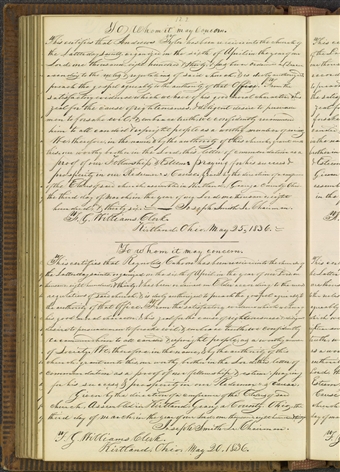 To Whom it may Concern.
This certifies that Andrew Tyler has been received into the church of
the Latter day saints organized on the sixth of April in the year of our
Lord one thousand eight hundred & thirty,
according to the rules & regulations of said church & is duly authorized to
preach the gospel agreeably to the authority of that office. From the
satisfactory evidence which we have of his good moral character & his
zeal for the cause of righteousness, & diligent desire to persuade
men to forsake evil & embrace truth we confidently recommend
him to all candid & upright people as a worthy member of society.
We therefore, in the name & by the authority of this church grant unto
this our worthy brother in the Lord this letter of commendation as a
proof of our Fellowship & Esteem: praying for his success &
prosperity in our Redeemer's Cause. Given by the direction of a conference
of the Elders of said church assembled in Kirtland Geauga County Ohio
the third day of march in the year of our Lord one thousand eight
hundred & thirty six. Joseph Smith Jr. Chairman.
F. G. Williams Clerk.
Kirtland Ohio May 25, 1836.
To whom it may concern.
This certifies that has been received into the church of
the Latter day saints organized on the sixth of April in the year of our Lord one
thousand eight hundred & thirty & has been ordained an Elder according to the rules &
regulations of said church & is duly authorized to preach the gospel agreeably to
the authority of that office. From the satisfactory evidence which we have of
his good moral character & his zeal for the cause of righteousness & diligent
desire to persuade men to forsake evil & embrace truth we confidently
recommend him to all candid & upright people as a worthy member
of Society. We therefore in the name & by the authority of this
church grant unto this our worthy brother in the Lord this letter of
commendation as a proof of our fellowship & esteem: praying
for his success & prosperity in our Redeemer's cause.
Given by the direction of a conference of the Elders of said
church assembled in Kirtland Geauga County Ohio the
third day of march in the year of our Lord one thousand eight hundred
Joseph Smith Jr. Chairman.
F. G. Williams Clerk.
Kirtland Ohio, May 26, 1836.